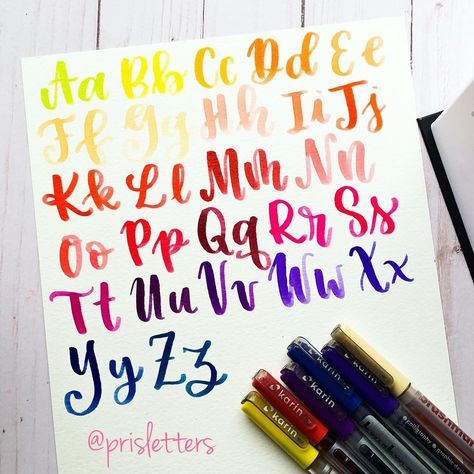 Aa Bb Cc Dd Ee
Ff Gg Hh Ii Jj
Kk Ll Mm Nn
Oo Pp Qq Rr Ss
Tt Uu Vv Ww Xx
Yy Zz
@prisletters
karin
karin
karin
karin
karin